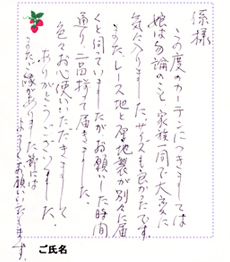 係様
この度のカーテンにつきましては
娘は勿論のこと家族一同で大変に
気に入りました。サイズも良かったです。
またレース地と厚地製が別々に届
くと伺っていましたがお願いした時間
通り二個持て届きました。
色々お心使いいただきまして
ありがとうございました
また、縁がありました節には
よろしくお願いいたします。
ご氏名